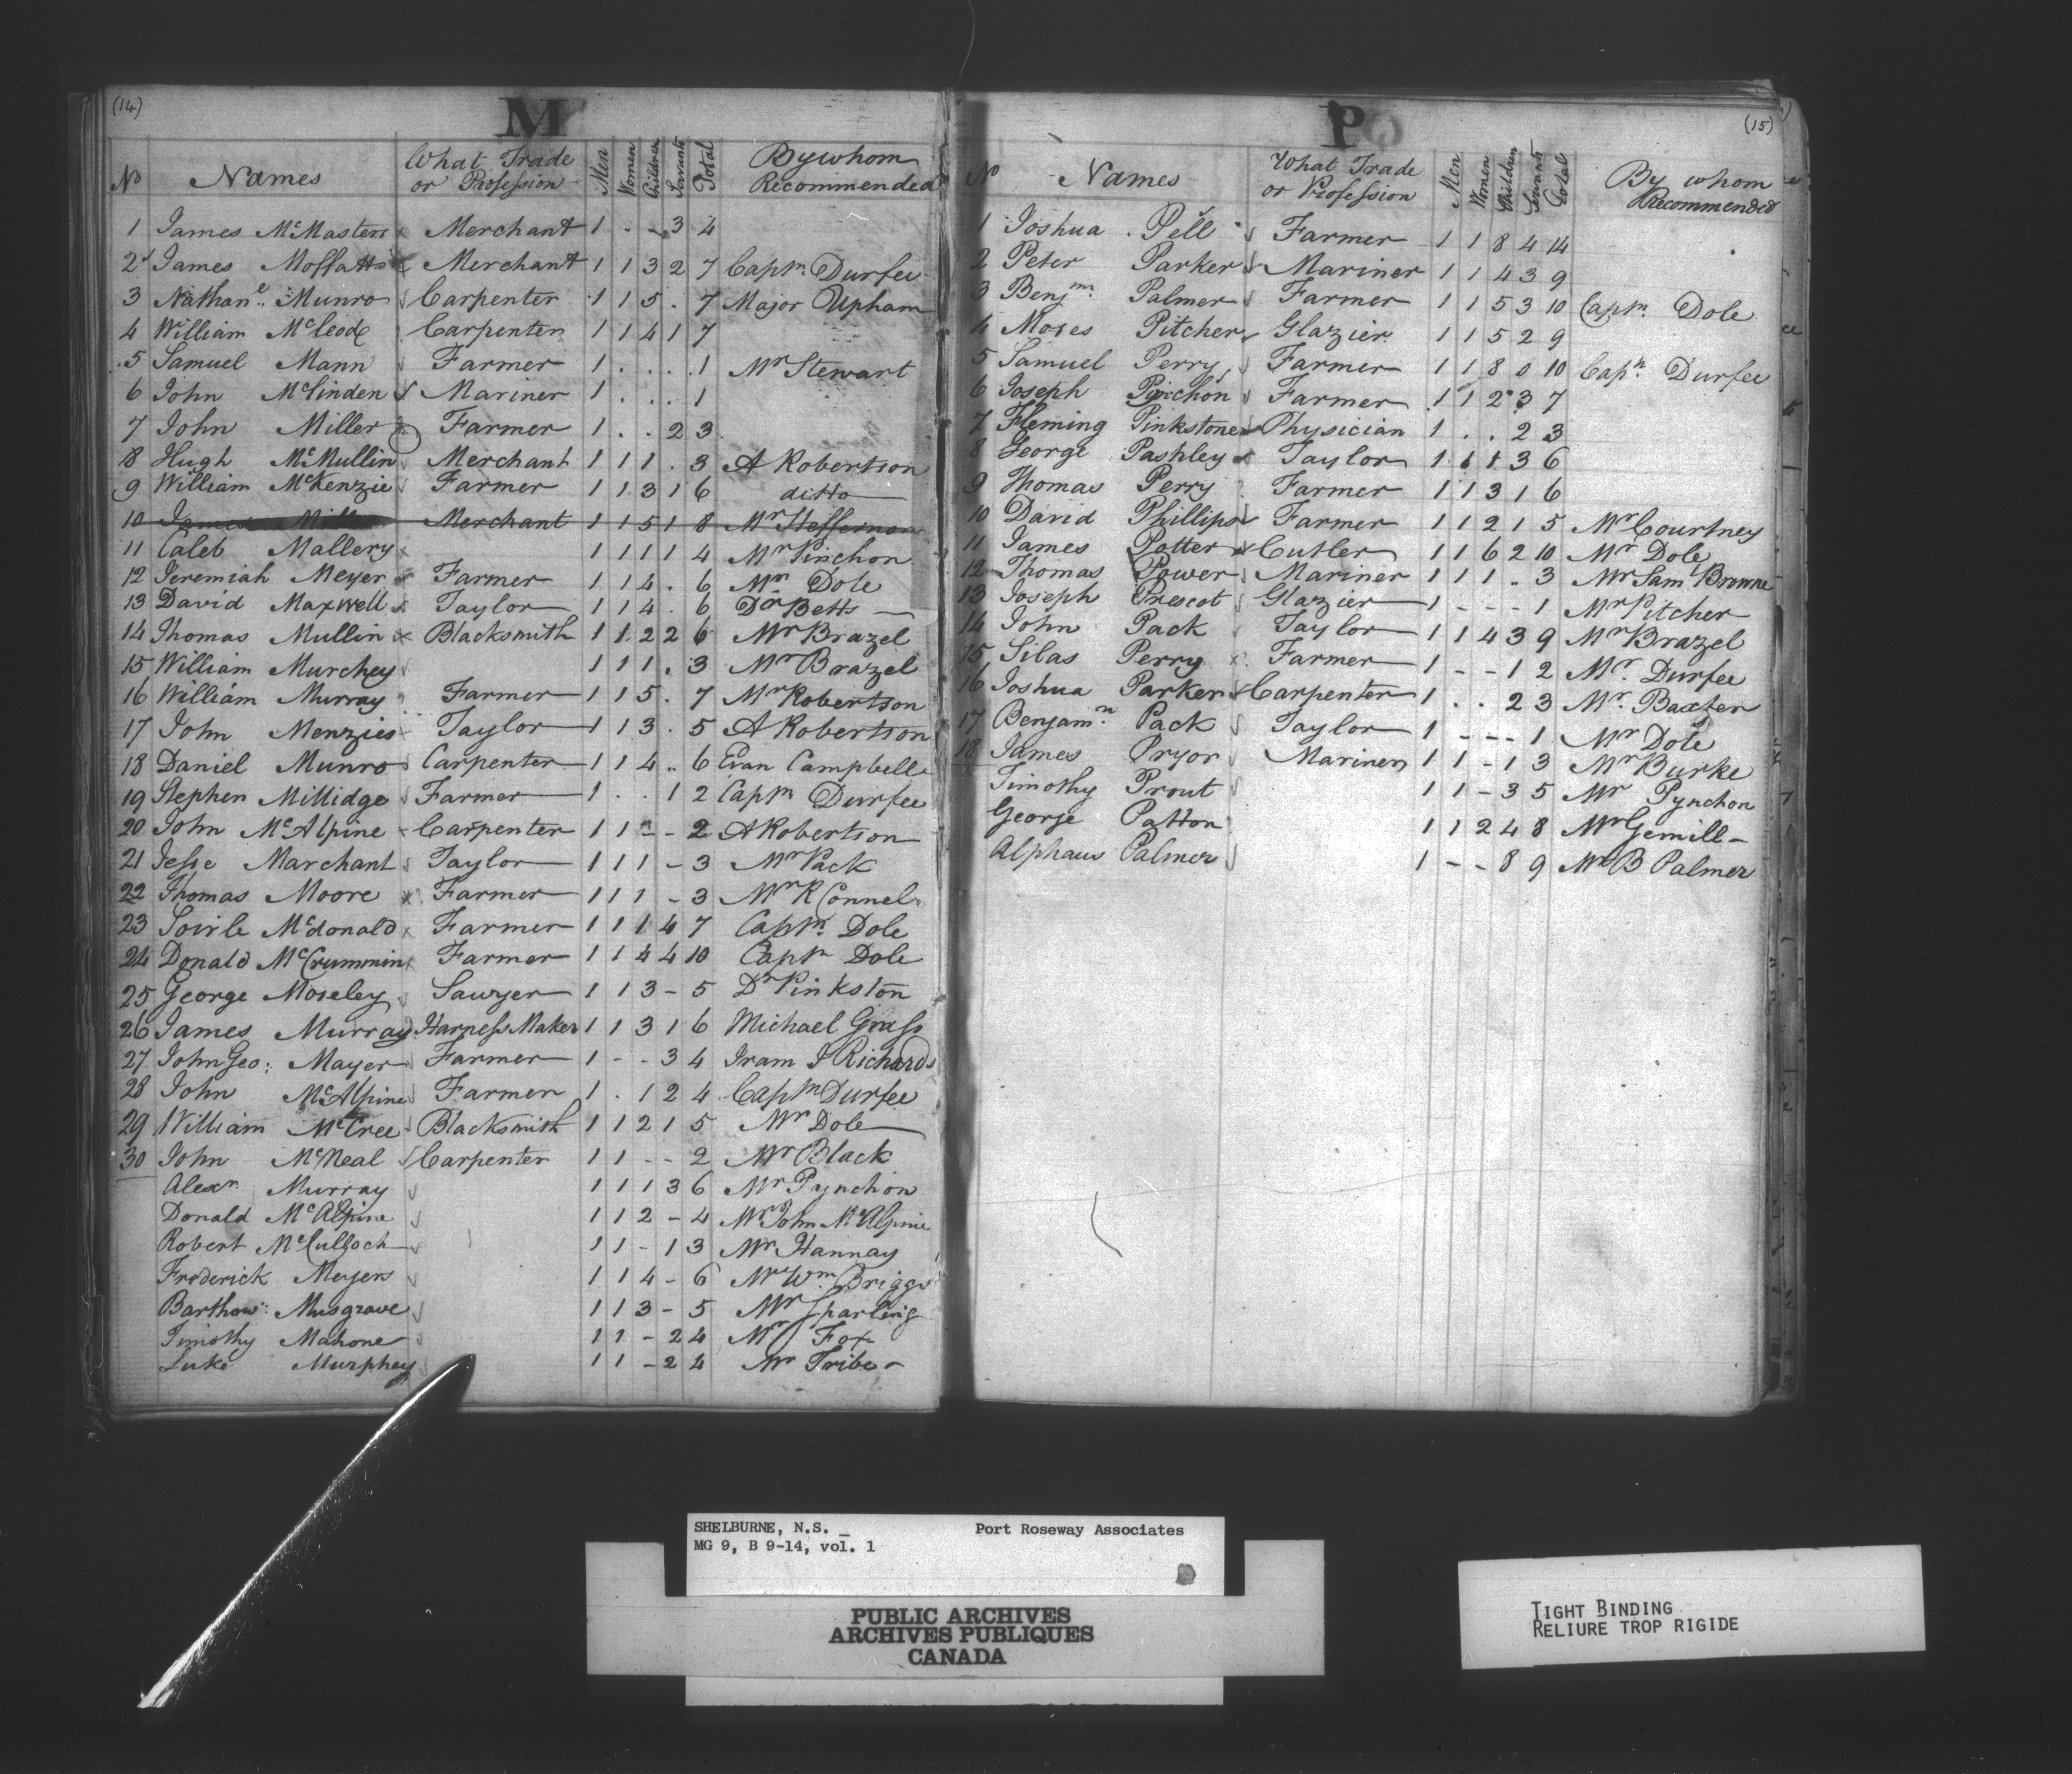 (14)
M
No Names What Trade or Profession Men Women Children Servants Total By whom Recommended
1 James McMasters Merchant 1 . - 3 4
2 James Moffatt Merchant 1 1 3 2 7 Captn Durfee
3 Nathanl Munro Carpenter 1 1 5 . 7 Major Upham
4 William McLeod Carpenter 1 1 4 1 7
5 Samuel Mann Farmer 1 . . . 1 Mr Stewart
6 John McLinden Mariner 1 . . . 1
7 John Miller Farmer 1 . . 2 3
8 Hugh McMullin Merchant 1 1 1 . 3 A Robertson
9 William McKenzie Farmer 1 1 3 1 6 ditto
10 James Merchant 1 1 5 1 8 Mr Heffernon
11 Caleb Mallery 1 1 1 1 4 Mr Pinchon
12 Jeremiah Meyer Farmer 1 1 4 . 6 Mr Dole
13 David Maxwell Taylor 1 1 4 . 6 Dr Betts
14 Thomas Mullin Blacksmith 1 1 2 2 6 Mr Brazel
15 William Murchey 1 1 1 . 3 Mr Brazel
16 William Murray Farmer 1 1 5 . 7 Mr Robertson
17 John Menzies Taylor 1 1 3 . 5 A Robertson
18 Daniel Munro Carpenter 1 1 4 .. 6 Evan Campbell
19 Stephen Millidge Farmer 1 . . 1 2 Captn Durfee
20 John McAlpine Carpenter 1 1 - - 2 A Robertson
21 Jesse Marchant Taylor 1 1 1 - 3 Mr Pack
22 Thomas Moore Farmer 1 1 1 - 3 Mr R Connel
23 Soirle Mcdonald Farmer 1 1 1 4 7 Captn Dole
24 Donald McCrummin Farmer 1 1 4 4 10 Captn Dole
25 George Moseley Sawyer 1 1 3 - 5 Dr Pinkston
26 James Murray Harness Maker 1 1 3 1 6 Michael Grass
27 John Geo: Mayer Farmer 1 - . 3 4 Iram I Richards
28 John McAlpine Farmer 1 . 1 2 4 Captn Durfee
29 William McCree Blacksmith 1 1 2 1 5 Mr Dole
30 John McNeal Carpenter 1 1 - - 2 Mr Black
Alexr Murray 1 1 1 3 6 Mr Pynchon
Donald McAlpine 1 1 2 - 4 Mr John McAlpine
Robert McCulloch 1 1 - 1 3 Mr Hannay
Frederick Meyers 1 1 4 - 6 Mr Wm Briggs
Barthow: Musgrave 1 1 3 - 5 Mr Sparling
Timothy Mahone 1 1 - 2 4 Mr Fox
Luke Murphey 1 1 - 2 4 Mr Tribe
(15)
P
No Names What Trade or Profession Men Women Children Servants Total By whom Recommended
1 Joshua Pell Farmer 1 1 8 4 14
2 Peter Parker Mariner 1 1 4 3 9
3 Benjmn Palmer Farmer 1 1 5 3 10 Captn Dole
4 Moses Pitcher Glazier 1 1 5 2 9
5 Samuel Perry Farmer 1 1 8 0 10 Capn Durfee
6 Joseph Pinchon Farmer 1 1 2 3 7
7 Fleming Pinkstone Physician 1 . . 2 3
8 George Pashley Taylor 1 1 1 3 6
9 Thomas Perry Farmer 1 1 3 1 6
10 David Phillips Farmer 1 1 2 1 5 Mr Courtney
11 James Potter Cutler 1 1 6 2 10 Mr Dole
12 Thomas Power Mariner 1 1 1 .. 3 Mr Saml Browne
13 Joseph Prescot Glazier 1 - - - 1 Mr Pitcher
14 John Pack Taylor 1 1 4 3 9 Mr Brazel
15 Silas Perry Farmer 1 - - 1 2 Mr. Durfee
16 Joshua Parker Carpenter 1 . . 2 3 Mr. Baxter
17 Benjamn Pack Taylor 1 - - - 1 Mr Dole
18 James Pryor Mariner 1 1 - 1 3 Mr Burke
Timothy Prout 1 1 - 3 5 Mr Pynchon
George Patton 1 1 2 4 8 Mr Gemill
Alphaus Palmer 1 - - 8 9 Mr B Palmer
SHELBURNE, N.S. _ Port Roseway Associates
MG 9, B 9-14, vol. 1
PUBLIC ARCHIVES
ARCHIVES PUBLIQUES
CANADA
TIGHT BINDING
RELIURE TROP RIGIDE